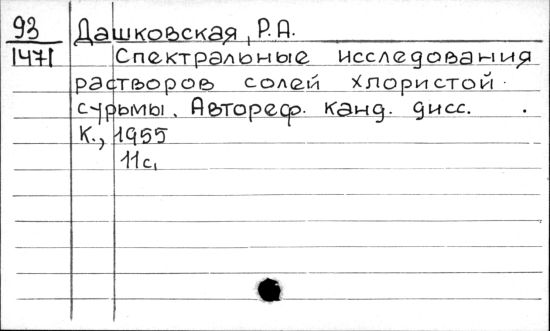 93
1471
Дашковская, Р.А.
Спектральные исследования
растворов солей хлористой
сурьмы. Автореф. канд. дисс.
К., 1955
11с,